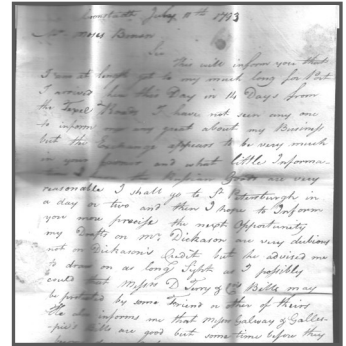 Cronstadt July 11th 1783
Mr Moses Brown
Sir
This will inform you that
I am at length got to my much long for Port
I arrived here this Day in 14 Days from
the Texel Roads, I have not seen any one
to inform me any great about my Business
but the Exchange appears to be very much
in your favour and what little Informa-
Russian Goods are very
reasonable I shall go to St Petersburgh in
a day or two and then I hope to Inform
you more precise the next Opportunity
my Drafts on Mr Dickason are very dubious
not on Dickason's Credit but he advised me
to draw on as long Sight as I possibly
could that Messrs D. Terry & Co Bills may
be protested by some Friend or other of theirs
He also informs me that Messrs Galway & Galles-
pie's Bills are good but some time before they